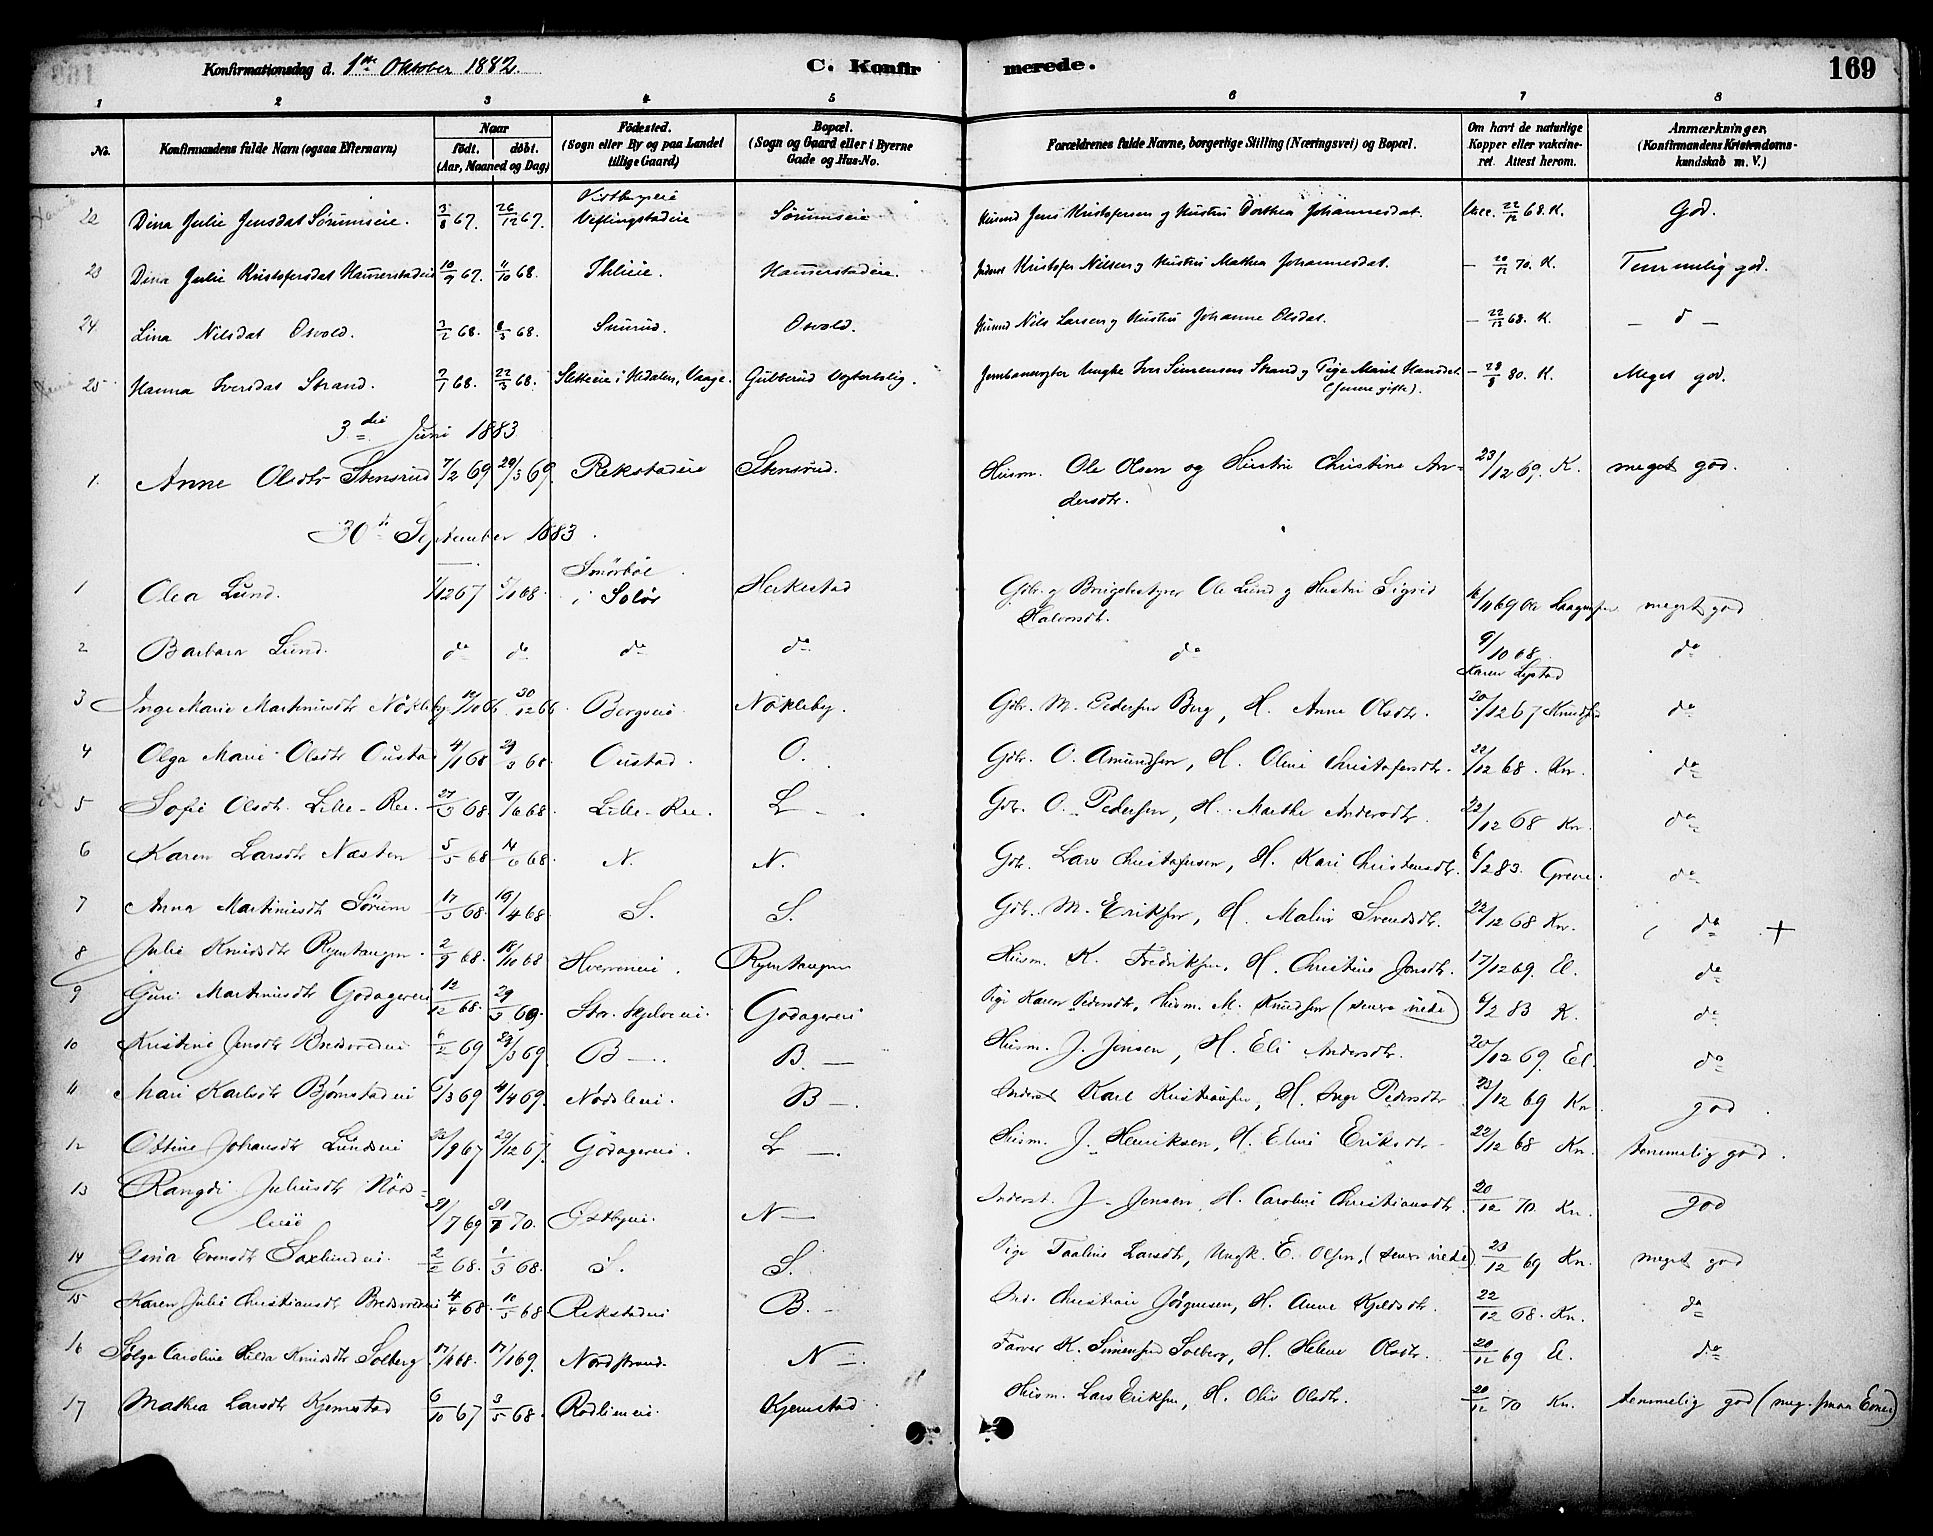 Konfirmationsdag d. 1ste Oktober 1882. C. Konfirmerede. 169
1 2 3 4 5 6 7 8
No. Konfirmandens fulde Navn (ogsaa Efternavn) Naar födt. döbt. (Aar, Maaned og Dag) Födested. (Sogn eller By og paa Landet tillige Gaard) Bopæl. (Sogn og Gaard eller i Byerne Gade og Hus-No. Forældrenes fulde Navne, borgerlige Stilling (Næringsvei) og Bopæl. Om havt de naturlige Kopper eller vakcineret. Attest herom. Anmærkninger. (Konfirmandens Kristendomskundskab m. V.)
22 Dina Julie Jensdat Sørumseie. 3/8 67. 26/12 67. Sørumseie Husmd Jens Kristofersen og Hustru Dorthea Johannesdat. Vacc. 22/12 68. K. God.
23 Dina Julie Kristofersdat Hammerstadeie 10/9 67. 11/10 68. Ihlieie. Hammerstadeie. Inderst Kristofer Nilsen og Hustru Mathea Johannesdat. — 20/12 70. K. Temmelig god.
24. Lina Nilsdat Osvold. 3/2 68. 8/3 68. Snurud. Osvold. Husmd Nils Larsen og Hustru Johanne Olsdat. — 22/12 68. K. — d —
25 Hanna Iversdat Strand. 2/1 68. 22/3 68. Sletteeie i Hedalen, Vaage. Gulterud Vogterbolig. Jernbanevogter Ungke Iver Simensen Strand og Pige Marit Hansdat. (senere gifte). — 28/8 80. K. Meget god.
3die Juni 1883
1. Anne Olsdtr Stensrud 7/2 69 29/3 69. Rekstadeie Stensrud. Husm. Ole Olsen og Hustru Christine Andersdtr. 23/12 69. K. meget god.
30te September 1883.
1 Olea Lund. 1/12 67 5/1 68. Smörböl i Solör Herkestad Gdbr. og Brugsbestyrer Ole Lund og Hustru Sigrid Halvorsdtr. 16/11 69 meget god
2 Barbara Lund. do do do do do 9/10 68. Karen Lystad do
3 Inge Marie Martiniusdtr Nökleby 19/10 66 30/12 66. Bergseie Nökleby. Gdbr. M. Pedersen Berg, H. Anne Olsdtr. 20/12 67 Knudsen do
4 Olga Marie Olsdtr Oustad 4/1 68 29/3 68. Oustad. O. Gdbr. O. Amundsen, H. Oline Christofersdtr. 22/12 68. Kn. do
5 Sofie Olsdtr. Lille-Ree. 27/3 68. 7/6 68. Lille-Ree. L — Gdbr. O. Pedersen, H. Marthe Andersdtr. 22/12 68 Kn. do
6 Karen Larsdtr Næsten 5/5 68. 14/6 68. N. N. Gdbr. Lars Christofersen, H. Kari Christensdtr. 6/2 83. Greve. do
7 Anna Martiniusdtr Sörum 17/3 68. 19/4 68. S. S. Gdbr. M. Eriksen, H. Malin Svendsdtr. 22/12 68 Kn. do +
8 Julie Knudsdtr Ryentangen. 2/9 68. 18/10 68 Hverveneie. Ryentangen Husm. K. Fredriksen, H. Christine Jonsdtr. 17/12 69. El. do
9 Guri Martiniusdtr Godagereie 12/12 68. 29/3 69. Stor-Skjelveie. Godagereie Pige Karen Pedersdtr, Husm. M. Knudsen (senere viede) 6/2 83 K. do
10 Kristine Jensdtr Bredvoldeie 6/2 69 29/3 69. B —. B. — Husm. J. Jensen, H. Eli Andersdtr. 20/12 69. El. do
11 Mari Karlsdtr Bjørnstadeie 6/3 69 4/4 69. Nordsleie. B —. Inderst Karl Kristiansen, H. Inge Pedersdtr 23/12 69 Kn. god.
12 Ottine Johansdtr Lundseie 22/9 67 29/12 67. Godagereie. L —. Husm. J. Henriksen, H. Eline Eriksdtr. 22/12 68 Kn. temmelig god.
13 Rangdi Juliusdtr Nordlieeie 31/7 69 31/7 70. N — Inderst. J. Jensen, H. Caroline Christiansdtr. 20/12 70. Kn. god
14 Gina Evensdtr Saxlundeie. 2/2 68. 1/3 68. S. S. Pige Taaline Larsdtr, Ungk. E. Olsen, (senere viede) 23/12 69 Kn. meget god
15 Karen Julie Christiansdtr Bredvoldeie 4/4 68. 10/5 68. Rekstadeie B. — Ind. Christian Jörgensen, H. Anne Kjeldsdtr. 22/12 68. Kn. do
16 Helga Caroline Hilda Knudsdtr Solberg 17/11 68. 17/1 69. Nordstrand. N —. Farver K. Simensen Solberg, H. Helene Olsdtr. 20/12 69 El. do
17 Mathea Larsdtr Kjemstad 6/10 67 3/5 68. Rodlieneie. Kjemstad Husm. Lars Eriksen, H. Olia Olsdtr. 20/12 70 Kn. temmelig god (meg. smaa Evner)